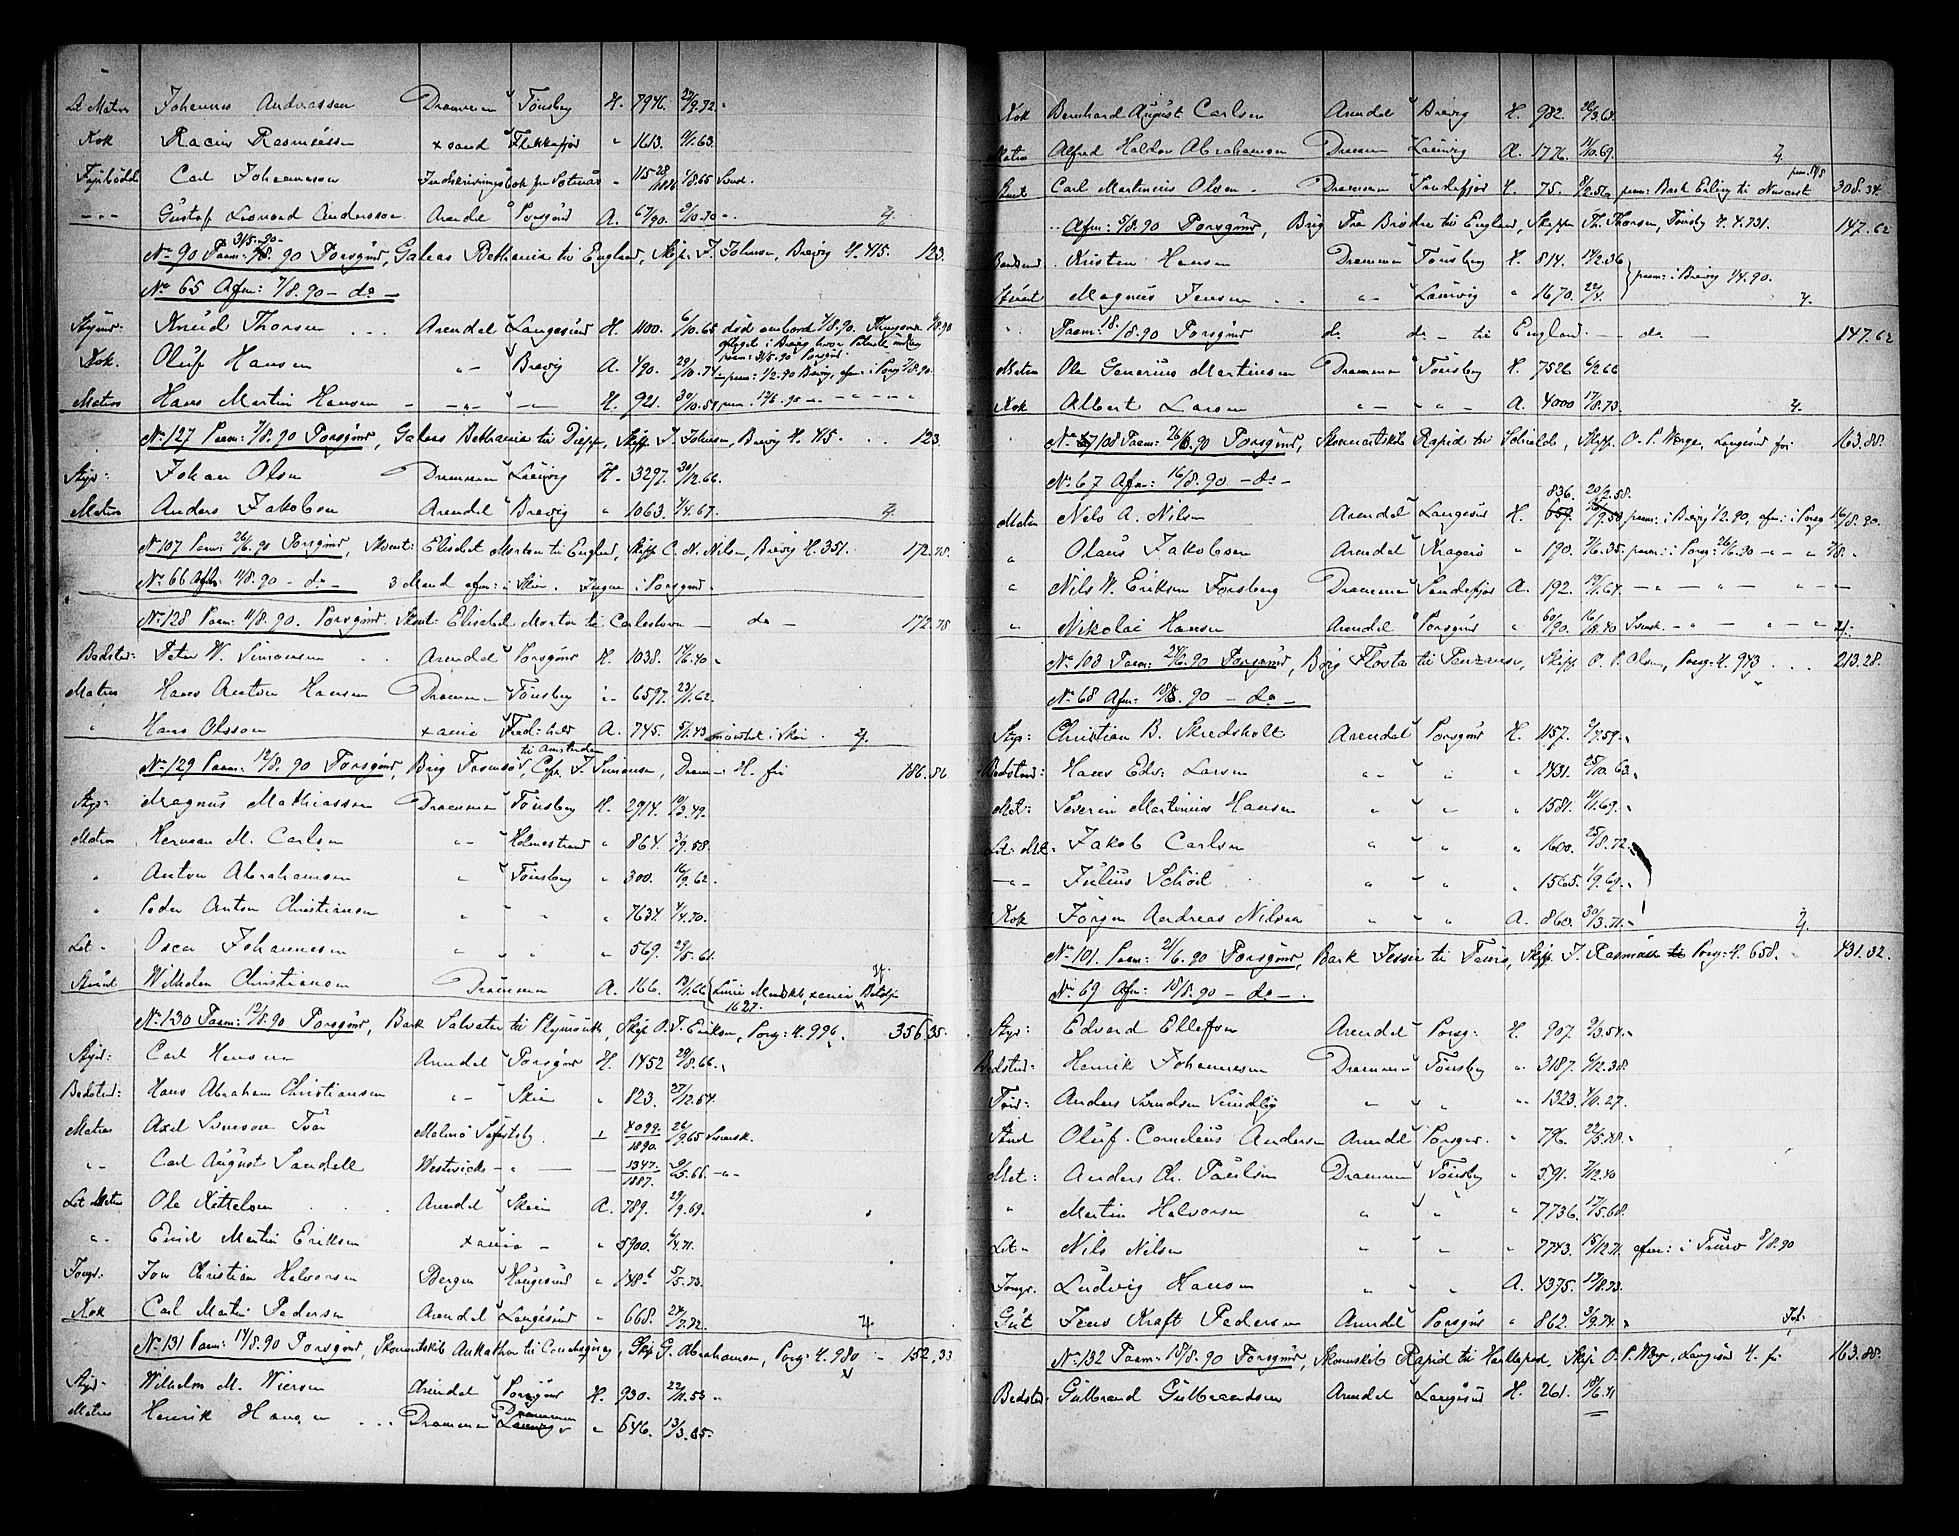 Let Matros Johannes Andreassen Drammen Tönsberg H. 7946. 27/9.72.
Kok Rasmussen xsand Flekkefjor " 1613. 9/1.63.
Carl Johannesson Indskrivningsbok fra 1/8.65 Svensk.
Gustaf Leonard Andersson Arendal Porsgrund A. 67/90. 9/10.70 -.
31/5-90-
No 90 Paam: 7/8.90 Porsgrund, Galeas Bethania til England, Skip. J. Johnsen, Brevig H. 415. 123.
No 65 Afm: 7/8.90 - do -
Styrm: Knud Thorsen Arendal Langesund H. 1100. 6/10.65 död ombord 4/8.90.
Kok. Oluf Hansen " - Brevig A. 190. 29/10.74 - paam: 1/2.90 Brevig, afm: i Porsg 7/8.90.
Matros Hans Martin Hansen - - " - - - H. 921. 30/10.59 paam. 17/6.90
No 127 Paam: 7/8.90 Porsgrund, Galeas Bethania til Dieppe, Skipp. J. Johnsen, Brevig H. 415. 123.
Styr: Johan Olsen Drammen Laurvig H. 3297. 30/12.66.
Matros Anders Jakobsen Arendal Brevig " 1063. 4/4.67. 2.
No 107 Paam: 26/6.90 Porsgrund, Skont: Elisabet Morton til England, Skipp C. N. Nilsen, Brevig H. 351. 172.75.
No 66 Afm: 11/8.90 - do - 3 Mand afm: i Skien. Ingen i Porsgrund.
No 128 Paam: 11/8.90. Porsgrund. Skont: Elisabet Morton til - do - 172.75
Bodstsm: Peter W. Simonsen Arendal Porsgrund H. 1038. 17/6.40
Matros Hans Anton Hansen Drammen Tönsberg " - 6597. 23/1.62.
" Hans Olsson xania Fred:hald A. 745. 5/1.43 mönstret i Skien. 3.
til Amsterdam
No 129 Paam: 12/8.90 Porsgrund, Brig Tromsö, J. Simonsen, Dram- H. fri 186.86
Styr: Magnus Mathiassen Drammen Tönsberg H. 2914. 10/3.49.
Matros Herman M. Carlsen " - Holmestrand " 864. 3/9.58.
" Anton Abrahamsen " Tönsberg " 300. 16/9.62.
" Peder Anton Christiansen " " " 7634. 4/4.70.
Let " Oscar Johannesen " " " 569. 29/5.61.
Stuart Wilhelm Christiansen Drammen A. 166. 19/1.66
1627.
No 130 Paam: 12/8.90 Porsgrund, Bark Salvator til Plymouth, Skip O. T. Eriksen, Porsg: H. 996. 356.35.
Styr: Carl Hansen Arendal Porsgrund H. 1452 29/8.66.
Bodstsm: Hans Abraham Christiansen " - Skien " 823. 27/12.54.
Matros Axel Simeon Malmö 4099/1890. 26/9.65 Svensk.
" - Carl August Sandell Westervick - " - 1347/1887. 9/5.66. - " -
Let Matros Ole Kittelsen Arendal Skien A. 789. 29/9.69.
" - Emil Martin Eriksen xania - " 5900. 6/4.71.
Jungm. Jon Christian Halvorsen Bergen Haugesund " 148-6 5/5.73.
Kok Carl Martin Pedersen Arendal Langesund " 668. 24/7.72. 4.
No 131 Paam: 14/8.90 Porsgrund, Skonnertskib Ankathor til Skip G. Abrahamsen, Porsg: H. 980 - 152.33
Styr: Wilhelm M. Wiersen Arendal Porsgrund H. 930. 22/11.53
Matros Henrik Hansen Drammen Drammen Laurvig " 646. 13/3.65.
Kok Bernhard August Carlsen Arendal Brevig H. 982. 26/3.63.
Matros Alfred Haldor Abrahamsen Drammen Laurvig A. 1776. 11/10.69. 2.
paam: 5/8
Carl Martinius Olsen - Drammen Sandefjor H. 75. 8/2.52 paam: Bark Erling til 308.34.
Afm: 5/8.90 Porsgrund, Brig Tre Brödre til England, Skipper Th. Thorsen, Tönsberg H. 4.731. 147.62
Kristen Hansen Drammen Tönsberg H. 814. 14/2.36 paam: i Brevig 1/4.90.
Stuart Magnus Jensen " - Laurvig " 1670. 22/4.
Paam: 18/8.90 Porsgrund do. do - til England. - do - 147.62
Matros Ole Generius Martinsen Drammen Tönsberg H. 7526 6/2.66
Kok Albert Larsen " - " - A. 4000 17/8.73. 2.
No 108 Paam: 26/6.90 Porsgrund, Skonnertskib Rapid til Skipp. O. P. Wege, Langesund fri 163.88.
No 67 Afm: 16/8.90 - do -
836. 20/2.58.
Matros Nils A. Nilsen Arendal Langesund H. 659. 9.50 paam: i Brevig 1/2.90, afm: i Porsg 16/8.90.
" Olaus Jakobsen Arendal Kragerö " 190. 7/6.35. paam: i Porsg: 26/6.90 - " - " 7/8.
" Nils W. Eriksen Forsberg Drammen Sandefjor A. 192. 19/1.64. - " - " - "
" Nikolai Hansen Arendal Porsgrund " 60/90. 16/8.40 Svensk. - " - " - "
No 103 Paam: 24/6.90 Porsgrund, Brig Flosta til Penzance, Skipp. O. P. Olsen, Porsg: H. 973 213.28.
No 68 Afm: 18/8.90 - do -
Styr: Christian B. Skredsholt Arendal Porsgrund H. 1157. 3/7.59.
Bodstsm: Hans Edv: Larsen " - " - " 1431. 25/10.63.
Mat: Severin Martinius Hansen " " " 1581. 11/1.69.
Let: Mat: Jakob Carlsen " " " 1600. 25/8.72.
- " - Julius Schöil " " " 1565. 1/9.69.
Kok Jörgen Andreas Nilsen " " A. 860. 30/3.71. 2.
No 101. Paam: 21/6.90 Porsgrund, Bark Jessie til Truro, Skipp. J. Rasmussen Porsg: H. 658. 431.32.
No 69 Afm: 18/8.90 - do -.
Styr: Edvard Ellefsen Arendal Porsg: H. 907. 9/3.54.
Bodstsm: Henrik Johannesen Drammen Tönsberg " 3187. 6/12.38.
Töm: Anders Svendsen Sundby " " " 1323. 4/11.27.
Stuart Oluf Cornelius Andersen Arendal Porsgr. " 796. 22/5.48.
Mat: Anders Ch. Paulsen Drammen Tönsberg " 591. 7/12.40
" Martin Halvorsen " " " 7736. 17/5.68.
Let " Nils Nilsen " " " 7743. 15/12.71. afm: i Truro 8/8.90
Jungm. Ludvig Hansen " " A. 4375. 19/8.73.
Gut Jens Kraft Pedersen Arendal Porsgr " 862. 3/9.74.
No 132 Paam: 18/8.90 Porsgrund, Skonskib Rapid til Hartlepool, Skip. O. P. Wege, Langesund H. fri 163.88.
Bodstsm: Gulbrand Gulbrandsen Arendal Langesund H. 261. 18/6.41